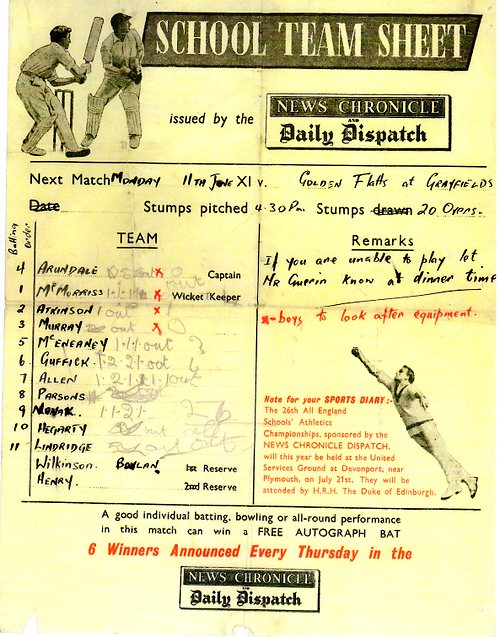 SCHOOL TEAM SHEET
issued by the
NEWS CHRONICLE
AND
Daily Dispatch
Next Match MONDAY 11TH JUNE XI v. GOLDEN FLATTS at GRAYFIELDS
Date Stumps pitched 4.30 Pm. Stumps drawn 20 Overs.
Batting order
TEAM
4 ARUNDALE out x 0 Captain
1 McMORRISS x out Wicket Keeper
2 ATKINSON 1 out x
3 MURRAY out x 0
5 McENEANEY 1.1.1 out 3
6 GUFFICK 1.2.21.out
7 ALLEN 1.2.1.1.1.out
8 PARSONS
9 NOVAK 1.1.2.1. 26
10 HEGARTY out
11 LINDRIDGE out
Wilkinson. BOYLAN 1st Reserve
HENRY. 2nd Reserve
Remarks
If you are unable to play let
Mr Guerin know at dinner time
x-boys to look after equipment.
Note for your SPORTS DIARY :-
The 26th All England
Schools' Athletics
Championships, sponsored by the
NEWS CHRONICLE DISPATCH,
will this year be held at the United
Services Ground at Devonport, near
Plymouth, on July 21st. They will be
attended by H.R.H. The Duke of Edinburgh.
A good individual batting, bowling or all-round performance
in this match can win a FREE AUTOGRAPH BAT
6 Winners Announced Every Thursday in the
NEWS CHRONICLE
AND
Daily Dispatch